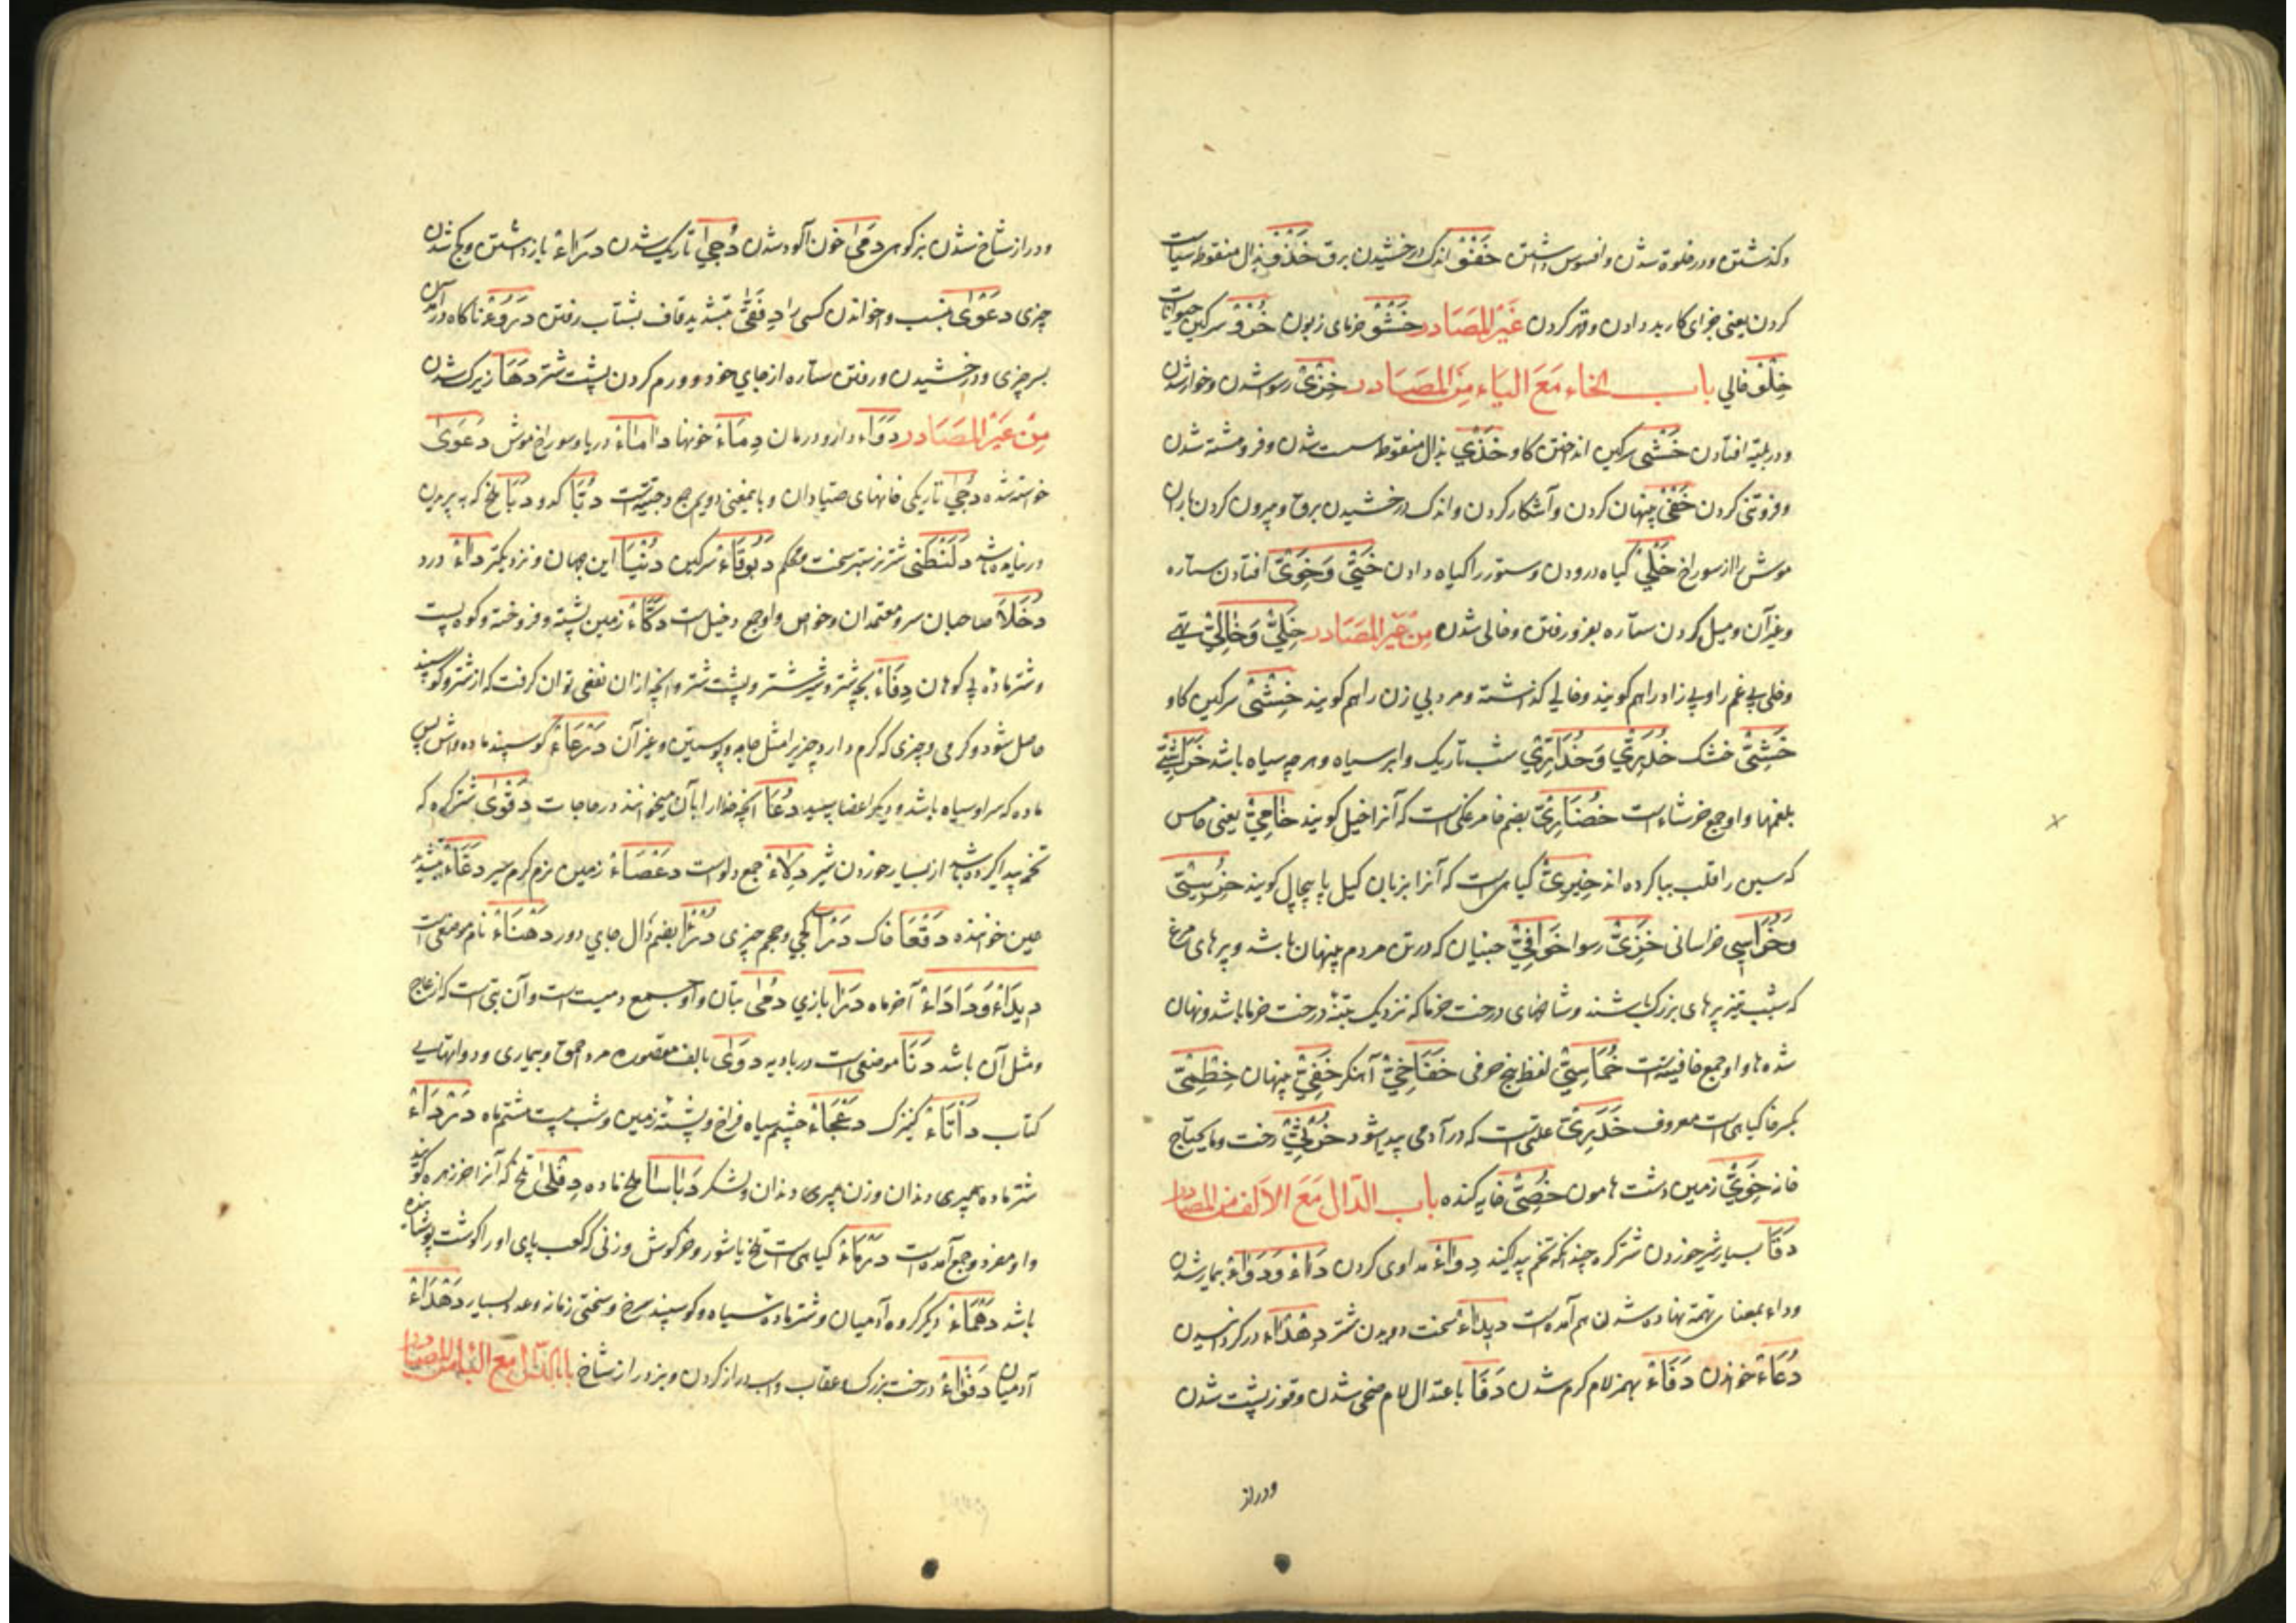 وکذشتن ودر خلوة شدن وافسوس داشتن خَفْقْ اندک درخشیدن برق خَذْفْ بذال منقوط سیاست
کردن یعنی جزای کار بد دادن وقهر کردن غَیْرِ المَصَادر خَشْوْ خرمای زبون سرکین حیوانات
خِلْوْ خالي باب الخاء مَعَ الیَاء مِنَ المَصَادر خِزْیْ رسوا شدن وخوار شدن
ودر بلیّه افتادن خَثْی سرکین انداختن کاو خَذْي بذال منقوط سست شدن وفروهشته شدن
وفروتنی کردن خَفْیْ پنهان کردن وآشکار کردن واندک درخشیدن برق وبیرون کردن باران
موش را از سوراخ خَلْيْ کیاه درودن وستور را کیاه دادن وَخَوِیّ افتادن ستاره
وغیر آن ومیل کردن ستاره بفرو رفتن وخالی شدن مِنْ غَیْرِ المَصَادر خَلِيّ وَخَالِيْ تهي
وخلی بی غم را وبی زاد را هم کویند وخالي کذشته ومرد بي زن را هم کویند خِثْیْ سرکین کاو
خشک خُدَارِيّ شب تاریک وابر سیاه وهرچه سیاه باشد
بلغمها واو جمع خرشاء است خُضَارِیّ بضم خا مرغکی است که آنرا اخیل کویند خَامِيْ یعنی خامس
که سین را قلب بیا کرده اند کیاهی است که آنرا بزبان کیل کویند خُرْسِيّ
وَخُرَاسِي خراسانی خَزِیْ رسوا خَوَافِيْ جنیان که در تن مردم پنهان باشد وپرهای مرغ
که شیب پرهای بزرک باشند وشاخهای درخت خرما که نزدیک بتنهٔ درخت خرما باشد ونهان
شده ها واو جمع خافیة است خُمَاسِيّ لفظ پنج حرفی آهنکر خَفِيّ پنهان خِطْمِيّ
بکسر خا کیاهی است معروف علتی است که در آدمی پیدا شود خُرْثِيّ رخت وما یحتاج
خانه خَوِيّ زمین دشت هامون خَصِيّ خایه کنده باب الدّال مَعَ الاَلف من المصادر
دَقَا بسیار شیر خوردن شتر کره چندانکه تخم پیدا کند دِوَاءْ مداوی کردن دَاءْ وَدَوَاءْ بیمار شدن
وداء بمعنای تهمة نهاده شدن هم آمده است سخت دویدن شتر در کردانیدن
دُعَاءْ خواندن دَفَاءْ بهمز لام کرم شدن دَفَا باعتدال لام خمی شدن وقوز پشت شدن
ودراز
ودراز شاخ شدن بز کوهی دَمَیٰ خون آلود شدن دُجیٰ تاریک شدن دَرَاءْ باز داشتن وکج شدن
چیزی دَعْوَیٰ بنسب وا خواندن کسی را بتشدید قاف بشتاب رفتن ناکاه در آمدن
بسر چیزی ودرخشیدن ورفتن ستاره از جاي خود وورم کردن پشت شتر دَهَا زیرک شدن
مِنْ غَیْرِ المَصَادر دَوَاء دارو ودرمان دِمَاءْ خونها دَامَاءْ دریا وسوراخ موش دَعْوَیٰ
خواسته شده دُجَیٰ تاریکی خانهای صیادان وبا بمعنی دویم جمع دجیة است دُبَّا کدو دَبَا ملخ که به پریدن
در نیامده باشد دَلَنْظَیٰ شتر ستبر سخت محکم دَبُوقَاءْ سرکین دُنْیَا این جهان ونزدیکتر دَاءْ درد
دُخَلَا صاحبان سر ومعتمدان وخواص واو جمع دخیل است دَکَّاءْ زمین پشته وفروخته وکوه پست
وشتر ماده بی کوهان دِفَاءْ بچه شتر وشیر شتر وپشت شتر وآنچه ازان نفعی توان کرفت که از شتر وکوسپند
حاصل شود وکرمی وچیزی که کرم دارد چیزیرا مثل جامه وپوستین وغیر آن دَرْعَاءْ کوسپند ماده واش پس
ماده که سر او سیاه باشد ودیکر اعضا سپید دُعَا آنچه خدا را بآن میخوانند در حاجات دَقْوَیٰ شتر کره که
تخمه پیدا کرده باشد از بسیار خوردن شیر دِلَاءْ جمع دلو است دَعْصَاءْ زمین نرم کرم سیر دَعَّاءْ بتشدید
عین خواننده دَقْعَا خاک کجي وحجم چیزی بضم دال جاي دور دَهْنَاءْ نام موضعی است
وَدَادَاءْ آخر ماه دَدَا بازي دُمَیٰ بتان واو جمع دمیت است وآن بتی است که از عاج
ومثل آن باشد دَنَا موضعی است در بادیه دَوَیٰ بالف مقصوره مرد احمق وبیماری ودوا
کتاب دَأثَاءْ کنیزک دَعْجَاءْ چشم سیاه فراخ وپشتهٔ زمین وشب بیست هشتم ماه دَرْدَاءْ
شتر ماده بیپیری دندان وزن بیپیری دندان ولشکر دَبَاسَا ملخ ماده دِفْلَیٰ تلخ که آنرا خرزهره کویند
واو مفرد وجمع آمده است دَرْمَاءْ کیاهی است تلخ یا شور وخرکوش وزنی که کعب پای او را کوشت پوشانیده
باشد دَهْمَاءْ دیکر کروه آدمیان وشتر ماده سیاه وکوسپند سرخ وسختی زمانه وعدد بسیار دَهْدَاءْ
آدمیان دَفْوَاءْ درخت بزرک وعقاب واسب دراز کردن وبز دراز شاخ باب الدّال مع البا من المصادر